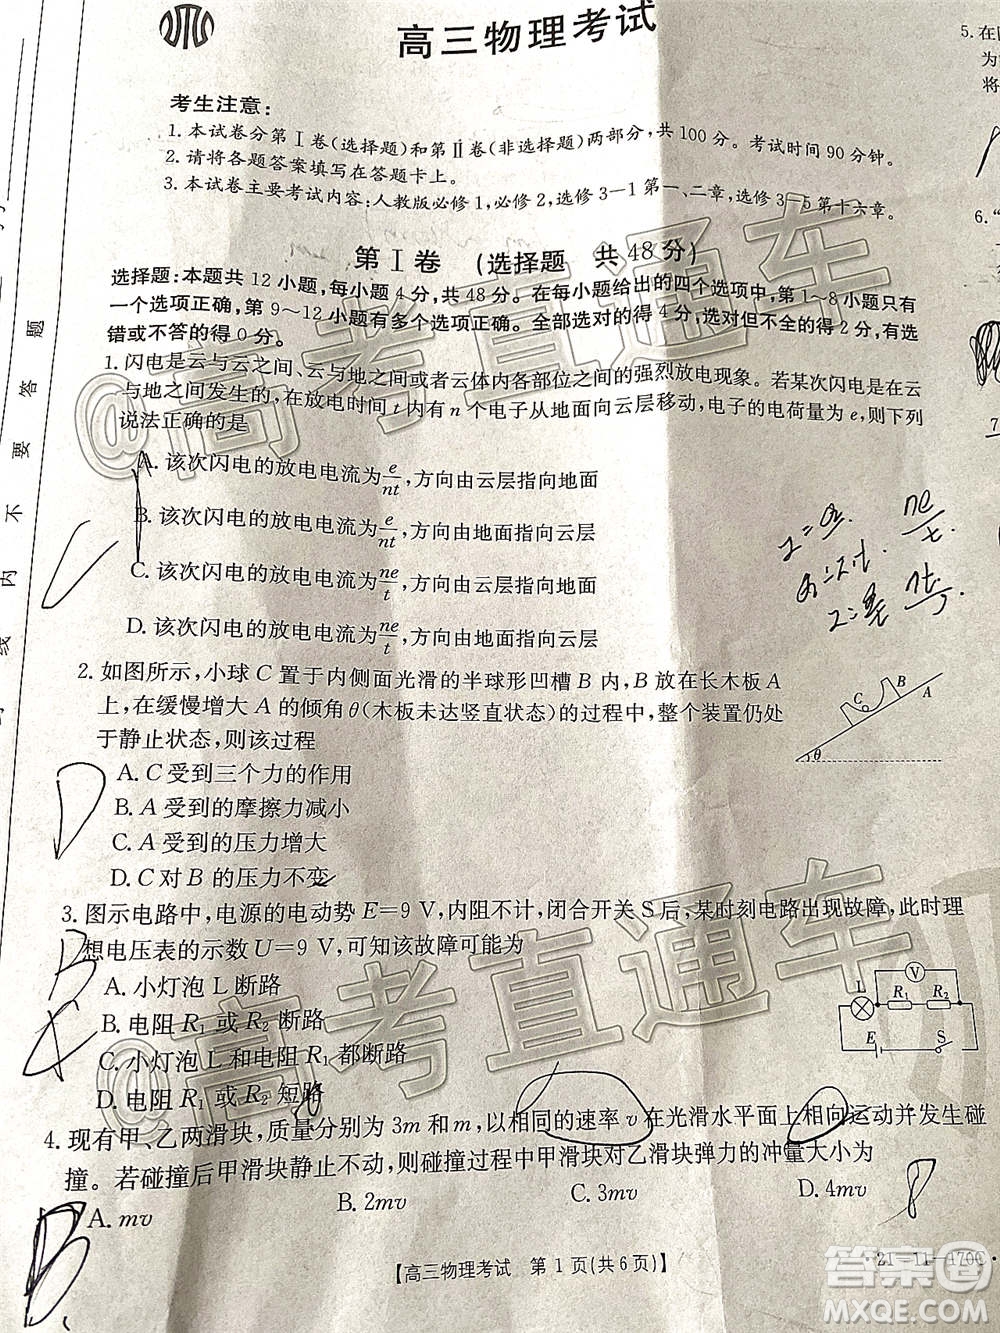 高三物理考试
考生注意:
1.本试卷分第Ⅰ卷(选择题)和第Ⅱ卷(非选择题)两部分,共100分。考试时间90分钟。
2.请将各题答案填写在答题卡上。
3.本试卷主要考试内容:人教版必修1,必修2,选修3-1第一、二章,选修3-5第十六章。
第Ⅰ卷 (选择题 共48分)
选择题:本题共12小题,每小题4分,共48分。在每小题给出的四个选项中,第1~8小题只有
一个选项正确,第9~12小题有多个选项正确。全部选对的得4分,选对但不全的得2分,有选
错或不答的得0分。
1.闪电是云与云之间、云与地之间或者云体内各部位之间的强烈放电现象。若某次闪电是在云
与地之间发生的,在放电时间t内有n个电子从地面向云层移动,电子的电荷量为e,则下列
说法正确的是
A.该次闪电的放电电流为e/nt,方向由云层指向地面
B.该次闪电的放电电流为e/nt,方向由地面指向云层
C.该次闪电的放电电流为ne/t,方向由云层指向地面
D.该次闪电的放电电流为ne/t,方向由地面指向云层
2.如图所示,小球C置于内侧面光滑的半球形凹槽B内,B放在长木板A
上,在缓慢增大A的倾角θ(木板未达竖直状态)的过程中,整个装置仍处
于静止状态,则该过程
A.C受到三个力的作用
B.A受到的摩擦力减小
C.A受到的压力增大
D.C对B的压力不变
C B A
θ
3.图示电路中,电源的电动势E=9 V,内阻不计,闭合开关S后,某时刻电路出现故障,此时理
想电压表的示数U=9 V,可知该故障可能为
A.小灯泡L断路
B.电阻R₁或R₂断路
C.小灯泡L和电阻R₁都断路
D.电阻R₁或R₂短路
V
L R₁ R₂
E S
4.现有甲、乙两滑块,质量分别为3m和m,以相同的速率v在光滑水平面上相向运动并发生碰
撞。若碰撞后甲滑块静止不动,则碰撞过程中甲滑块对乙滑块弹力的冲量大小为
A.mv B.2mv C.3mv D.4mv
【高三物理考试 第1页(共6页)】
·21-11-170C·
5.在
为
将
6.“
7
题
答
要
不
内
线
@高考直通车
@高考直通车
答案圈
MXQE.COM